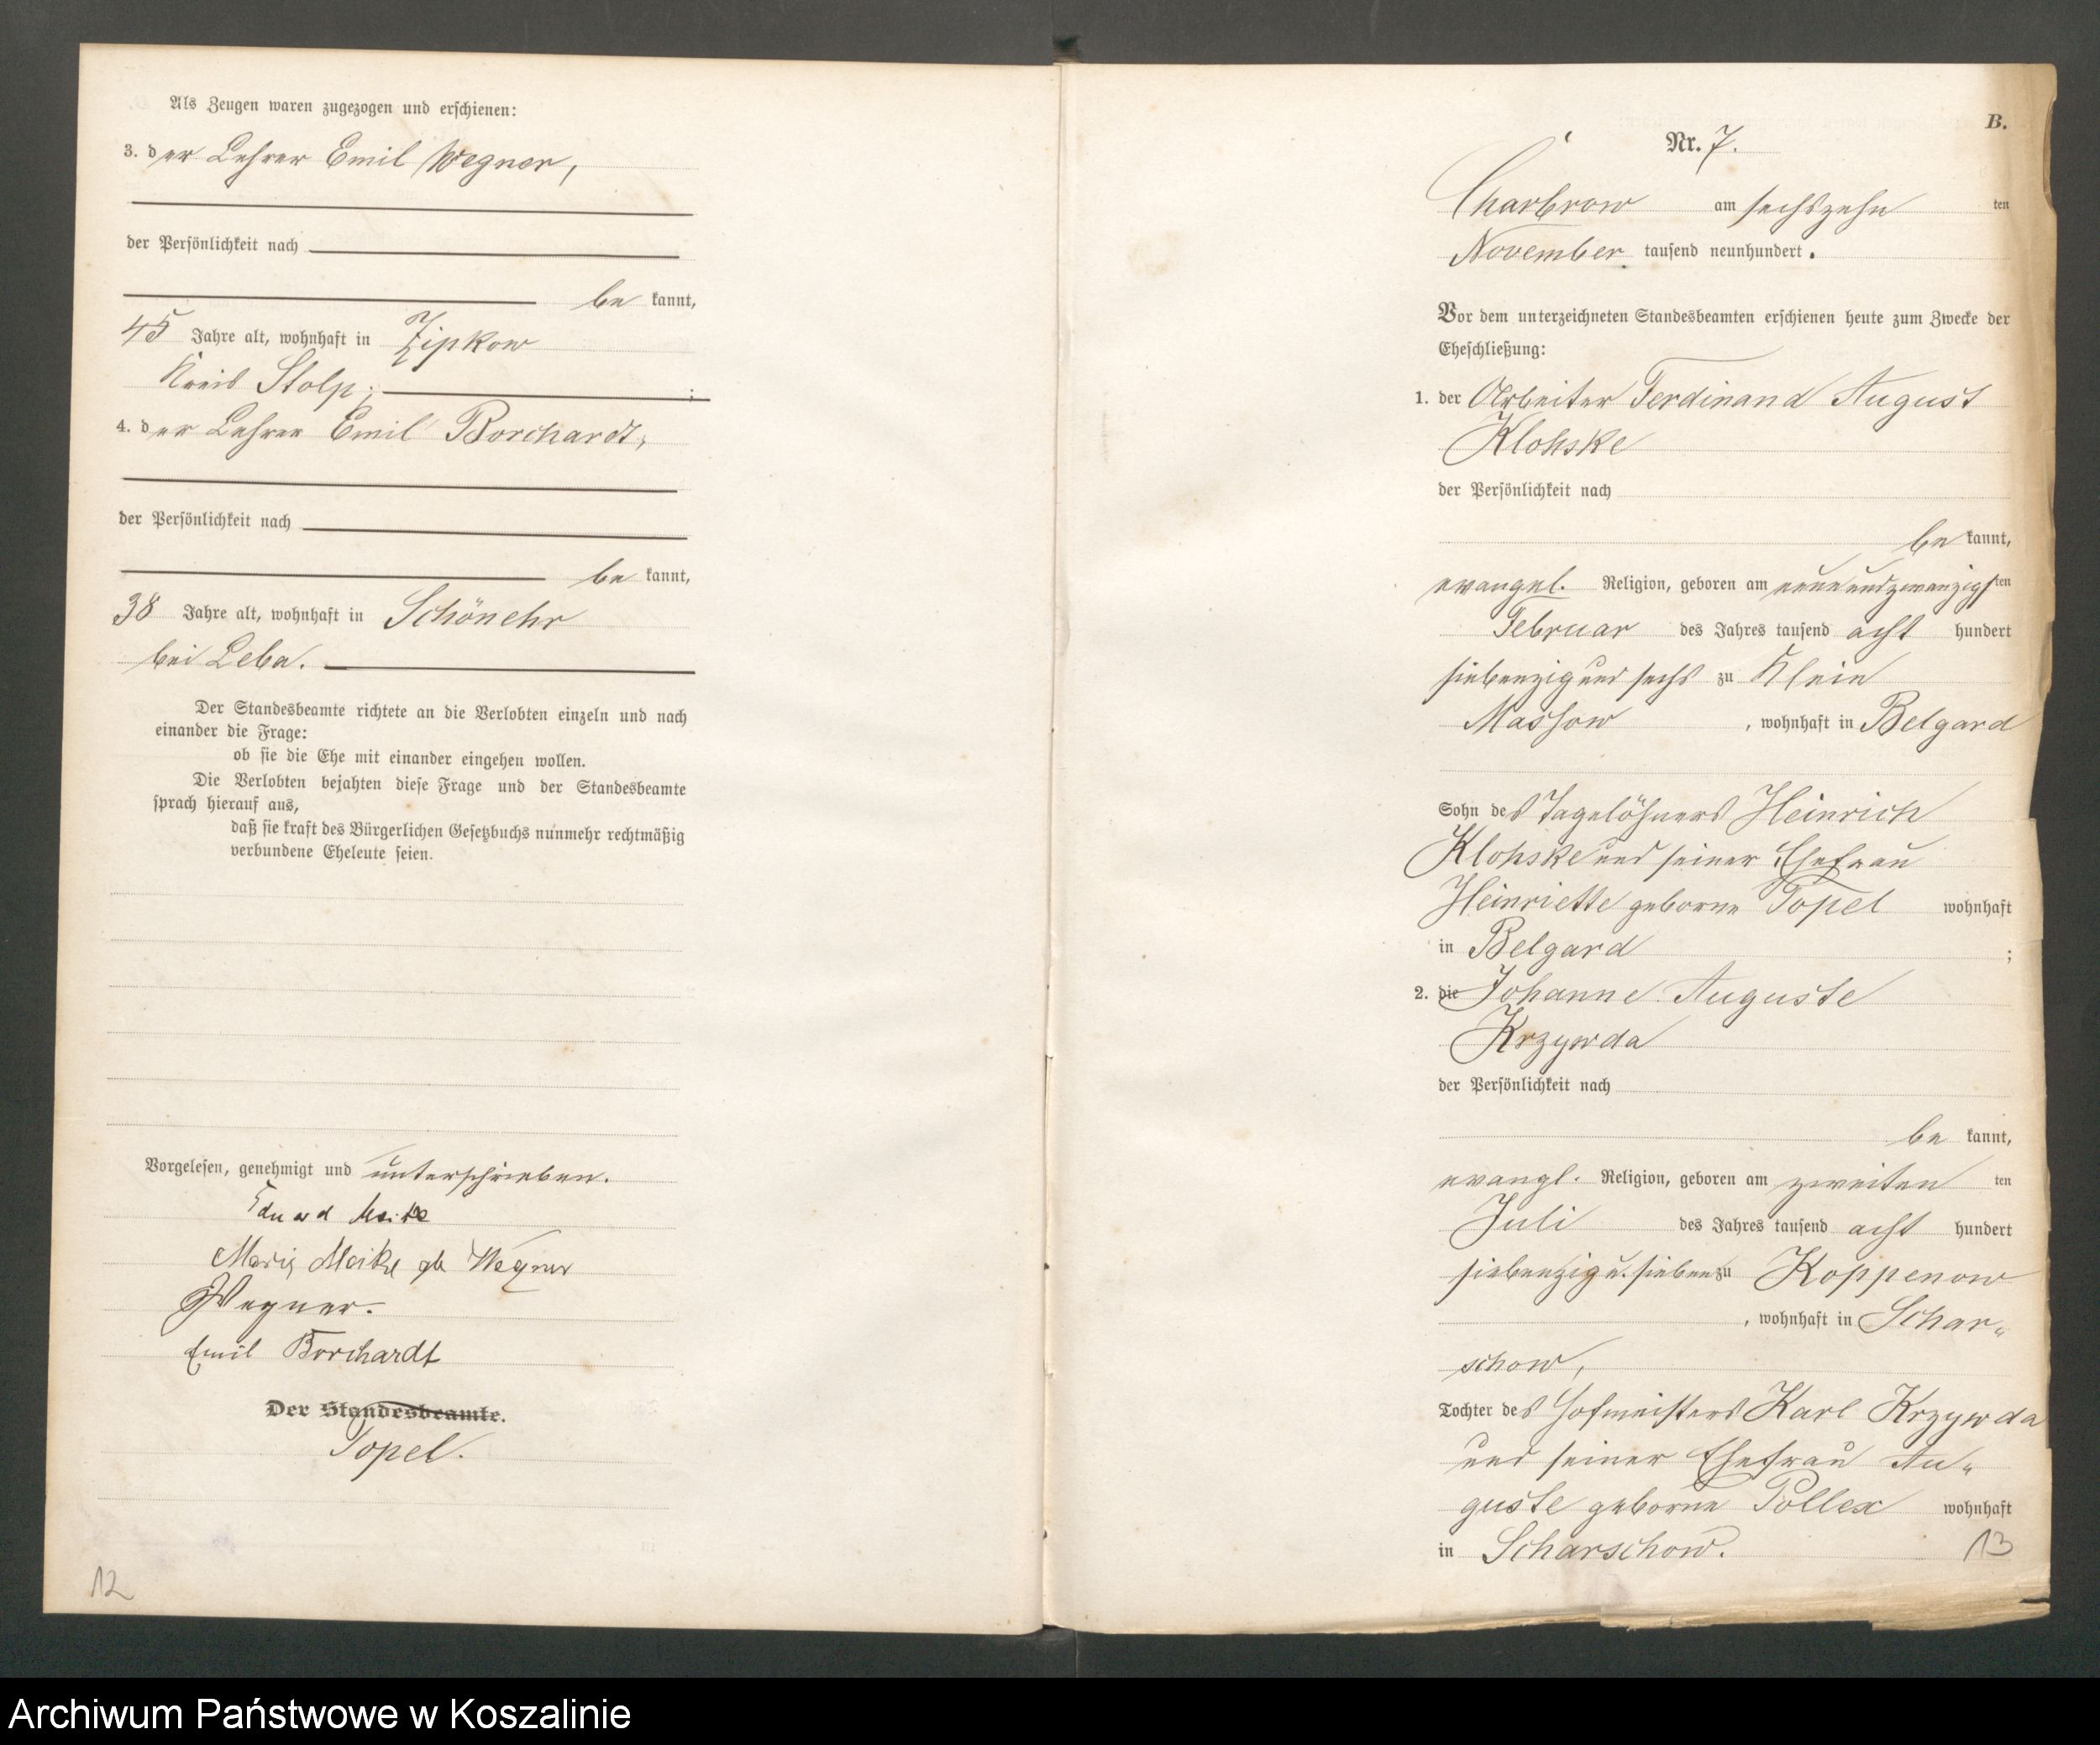 Als Zeugen waren zugezogen und erschienen:
3. der Lehrer Emil Wegner,
der Persönlichkeit nach
be kannt,
45 Jahre alt, wohnhaft in Zipkow
Kreis Stolp; ;
4. der Lehrer Emil Borchardt,
der Persönlichkeit nach
be kannt,
38 Jahre alt, wohnhaft in Schönehr
bei Leba.
Der Standesbeamte richtete an die Verlobten einzeln und nach
einander die Frage:
ob sie die Ehe mit einander eingehen wollen.
Die Verlobten bejahten diese Frage und der Standesbeamte
sprach hierauf aus,
daß sie kraft des Bürgerlichen Gesetzbuchs nunmehr rechtmäßig
verbundene Eheleute seien.
Vorgelesen, genehmigt und unterschrieben.
Eduard
Marie geb Wegner
Wegner.
Emil Borchardt
Der Standesbeamte.
Topel.
12
B.
Nr. 7.
Charbrow am sechszehn ten
November tausend neunhundert.
Vor dem unterzeichneten Standesbeamten erschienen heute zum Zwecke der
Eheschließung:
1. der Arbeiter Ferdinand August
Klohske
der Persönlichkeit nach
be kannt,
evangel. Religion, geboren am neunundzwanzigsten
Februar des Jahres tausend acht hundert
siebenzig und sechs zu Klein
Massow , wohnhaft in Belgard
Sohn des Tagelöhners Heinrich
Klohske und seiner Ehefrau
Heinriette geborne Topel wohnhaft
in Belgard ;
2. die Johanne Auguste
Krzywda
der Persönlichkeit nach
be kannt,
evangl. Religion, geboren am zweiten ten
Juli des Jahres tausend acht hundert
siebenzig u. sieben zu Koppenow
, wohnhaft in Schar„
schow,
Tochter des Hofmeisters Karl Krzywda
und seiner Ehefrau Au„
guste geborne Pollex wohnhaft
in Scharschow.
13
Archiwum Państwowe w Koszalinie